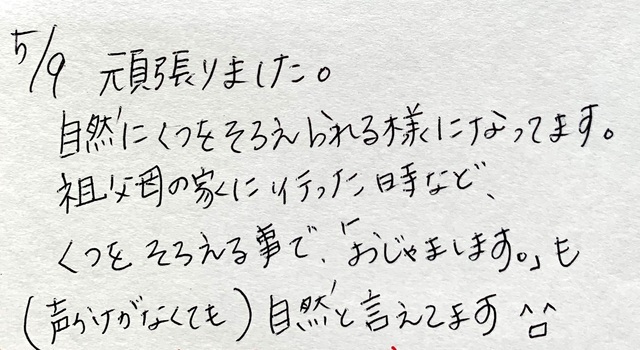 5/9 頑張りました。
自然にくつをそろえられる様になってます。
祖父母の家に行った時など、
くつをそろえる事で、「おじゃまします。」も
(声かけがなくても)自然と言えてます ^口^